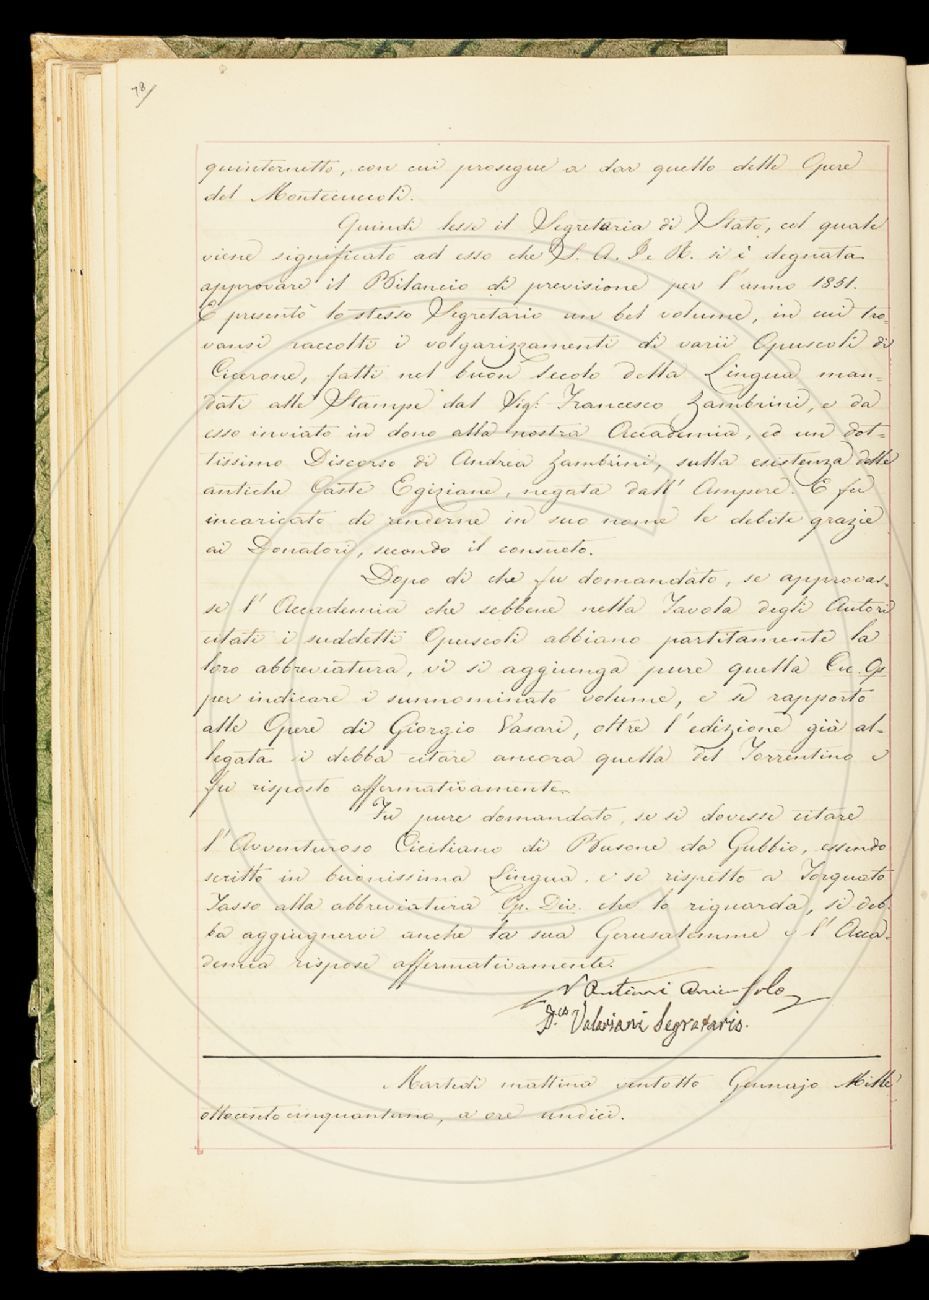 78/
quinternetto, con cui prosegue a dar quello delle Opere
del Montecuccoli.
Quindi lesse il Segretario di Stato, col quale
viene significato ad esso che S. A. I. e R. si è degnata
approvare il Bilancio di previsione per l'anno 1851.
E presentò lo stesso Segretario un bel volume, in cui tro-
vansi raccolti i volgarizzamenti di varii Opuscoli di
Cicerone, fatti nel buon Secolo della Lingua man-
dati alle Stampe dal Sig.r Francesco Zambrini, e da
esso inviato in dono alla nostra Accademia, ed un dot-
tissimo Discorso di Andrea Zambrini, sulla esistenza delle
antiche Caste Egiziane, negata dall' Ampere. E fu
incaricato di renderne in suo nome le debite grazie
ai Donatori, secondo il consueto.
Dopo di che fu domandato, se approvas-
se l' Accademia che sebbene nella Tavola degli Autori
citati i suddetti Opuscoli abbiano partitamente la
loro abbreviatura, vi si aggiunga pure quella Cic. Op.
per indicare i sunnominato volume, e se rapporto
alle Opere di Giorgio Vasari, oltre l'edizione già al-
legata si debba citare ancora quella del Torrentino e
fu risposto affermativamente.
Fu pure domandato, se si dovesse citare
l'Avventuroso Ciciliano di Busone da Gubbio, essendo
scritto in buonissima Lingua. e se rispetto a Torquato
Tasso alla abbreviatura Op. Div. che lo riguarda, si deb-
ba aggiugnervi anche la sua Gerusalemme e l' Acca-
demia rispose affermativamente.
V Antinori Arciconsolo
D.co Valeriani Segretario.
Martedì mattina ventotto Gennajo Mille
ottocentocinquantuno, a ore undici.